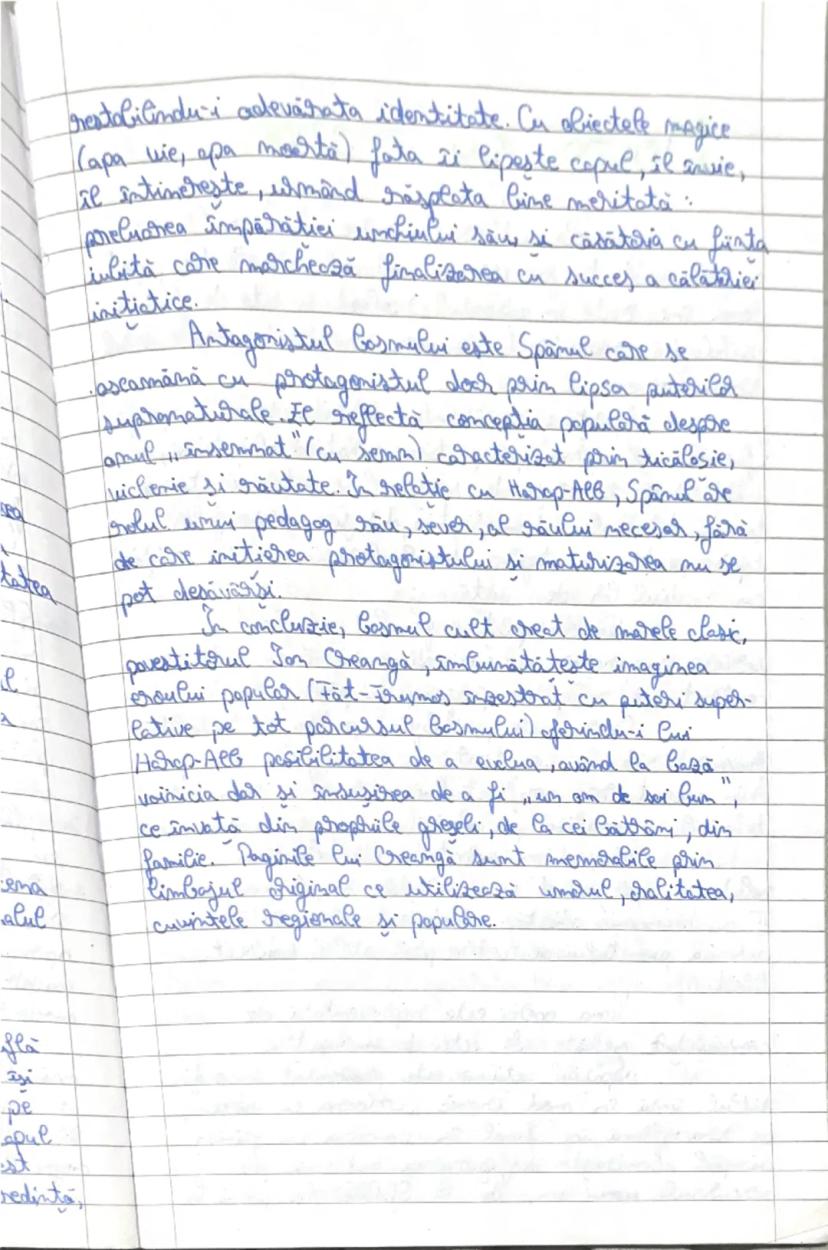 restabilindu-i adevărata identitate. Cu obiectele magice
(apa vie, apa moartă) fata îi lipește capul, îl învie,
îl întinerește, urmând răsplata bine meritată :
preluarea împărăției unchiului său și căsătoria cu ființa
iubită care marchează finalizarea cu succes a călătoriei
inițiatice.
Antagonistul basmului este Spânul care se
aseamănă cu protagonistul doar prin lipsa puterilor
supranaturale. El reflectă concepția populară despre
omul „însemnat" (cu semn) caracterizat prin ticăloșie,
viclenie și răutate. În relație cu Harap-Alb, Spânul are
rolul unui pedagog rău, sever, al răului necesar, fără
de care inițierea protagonistului și maturizarea nu se
pot desăvârși.
În concluzie, basmul cult creat de marele clasic,
povestitorul Ion Creangă, îmbunătățește imaginea
eroului popular (Făt-Frumos înzestrat cu puteri super-
lative pe tot parcursul basmului) oferindu-i lui
Harap-Alb posibilitatea de a evolua, având la bază
voinicia dar și însușirea de a fi „un om de soi bun",
ce învață din propriile greșeli, de la cei bătrâni, din
familie. Paginile lui Creangă sunt memorabile prin
limbajul original ce utilizează umorul, oralitatea,
cuvintele regionale și populare.
tatea
ema
alul
flă
își
pe
apul
st
redință,